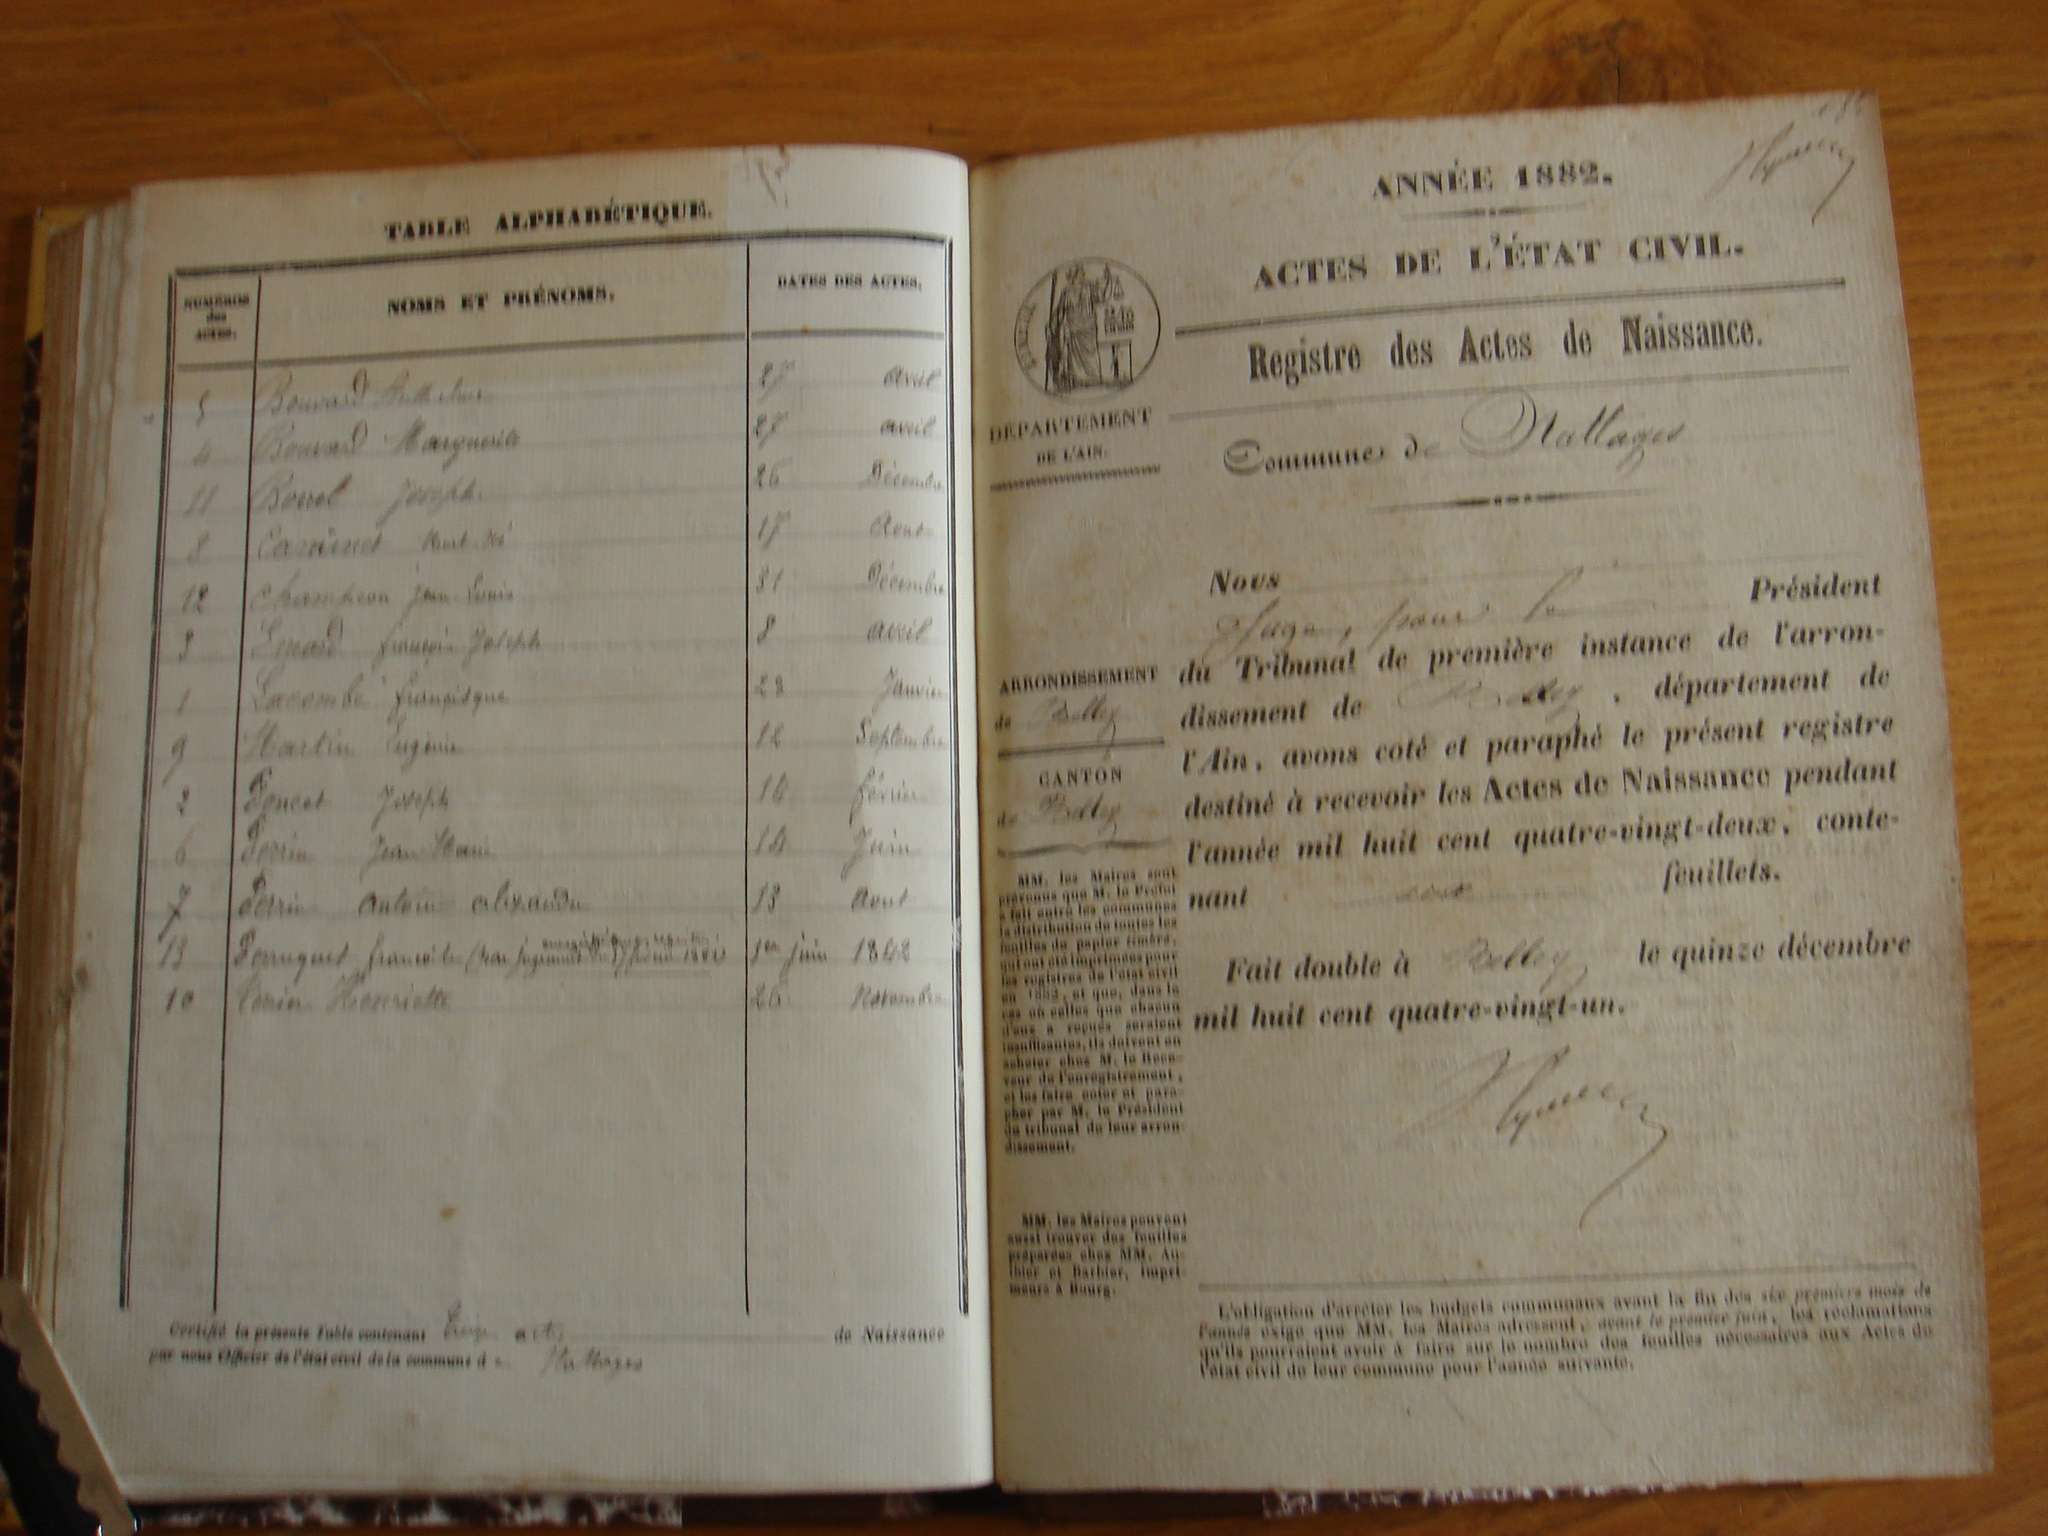 TABLE ALPHABÉTIQUE.
NUMÉROS des ACTES. NOMS ET PRÉNOMS. DATES DES ACTES.
5 Bouvard 27 avril
4 Bouvard Marguerite 27 avril
11 Borrel Joseph 26 Décembre
8 17 Aout
12 Champion Jean Louis 31 Décembre
3 françois Joseph 8 avril
1 Lacombe françisque 28 Janvier
9 Martin Eugénie 12 Septembre
2 Poncet Joseph 14 février
6 Perrin Jean Marie 14 Juin
7 Perrin antoine alexandre 13 Aout
13 Perruquet 1er juin 1842
10 Henriette 26 Novembre
Certifié la présente Table contenant treize actes de Naissance
par nous Officier de l'état civil de la commune d e Nattages
ANNÉE 1882.
ACTES DE L'ÉTAT CIVIL.
Registre des Actes de Naissance.
DÉPARTEMENT
DE L'AIN.
Commune de Nattages
ARRONDISSEMENT
de Belley
CANTON
de Belley
MM. les Maires sont
prévenus que M. le Préfet
a fait entre les communes
la distribution de toutes les
feuilles de papier timbré,
qui ont été imprimées pour
les registres de l'état civil
en 1882, et que, dans le
cas où celles que chacun
d'eux a reçues seraient
insuffisantes, ils doivent en
acheter chez M. le Rece-
veur de l'enregistrement,
et les faire coter et para-
pher par M. le Président
du tribunal de leur arron-
dissement.
MM. les Maires peuvent
aussi trouver des feuilles
préparées chez MM. Au-
thier et Barbier, impri-
meurs à Bourg.
Nous
Juge, pour le Président
du Tribunal de première instance de l'arron-
dissement de Belley, département de
l'Ain, avons coté et paraphé le présent registre
destiné à recevoir les Actes de Naissance pendant
l'année mil huit cent quatre-vingt-deux, conte-
nant feuillets.
Fait double à Belley le quinze décembre
mil huit cent quatre-vingt-un.
L'obligation d'arrêter les budgets communaux avant la fin des six premiers mois de
l'année exige que MM. les Maires adressent, avant le premier juin, les réclamations
qu'ils pourraient avoir à faire sur le nombre des feuilles nécessaires aux Actes de
l'état civil de leur commune pour l'année suivante.